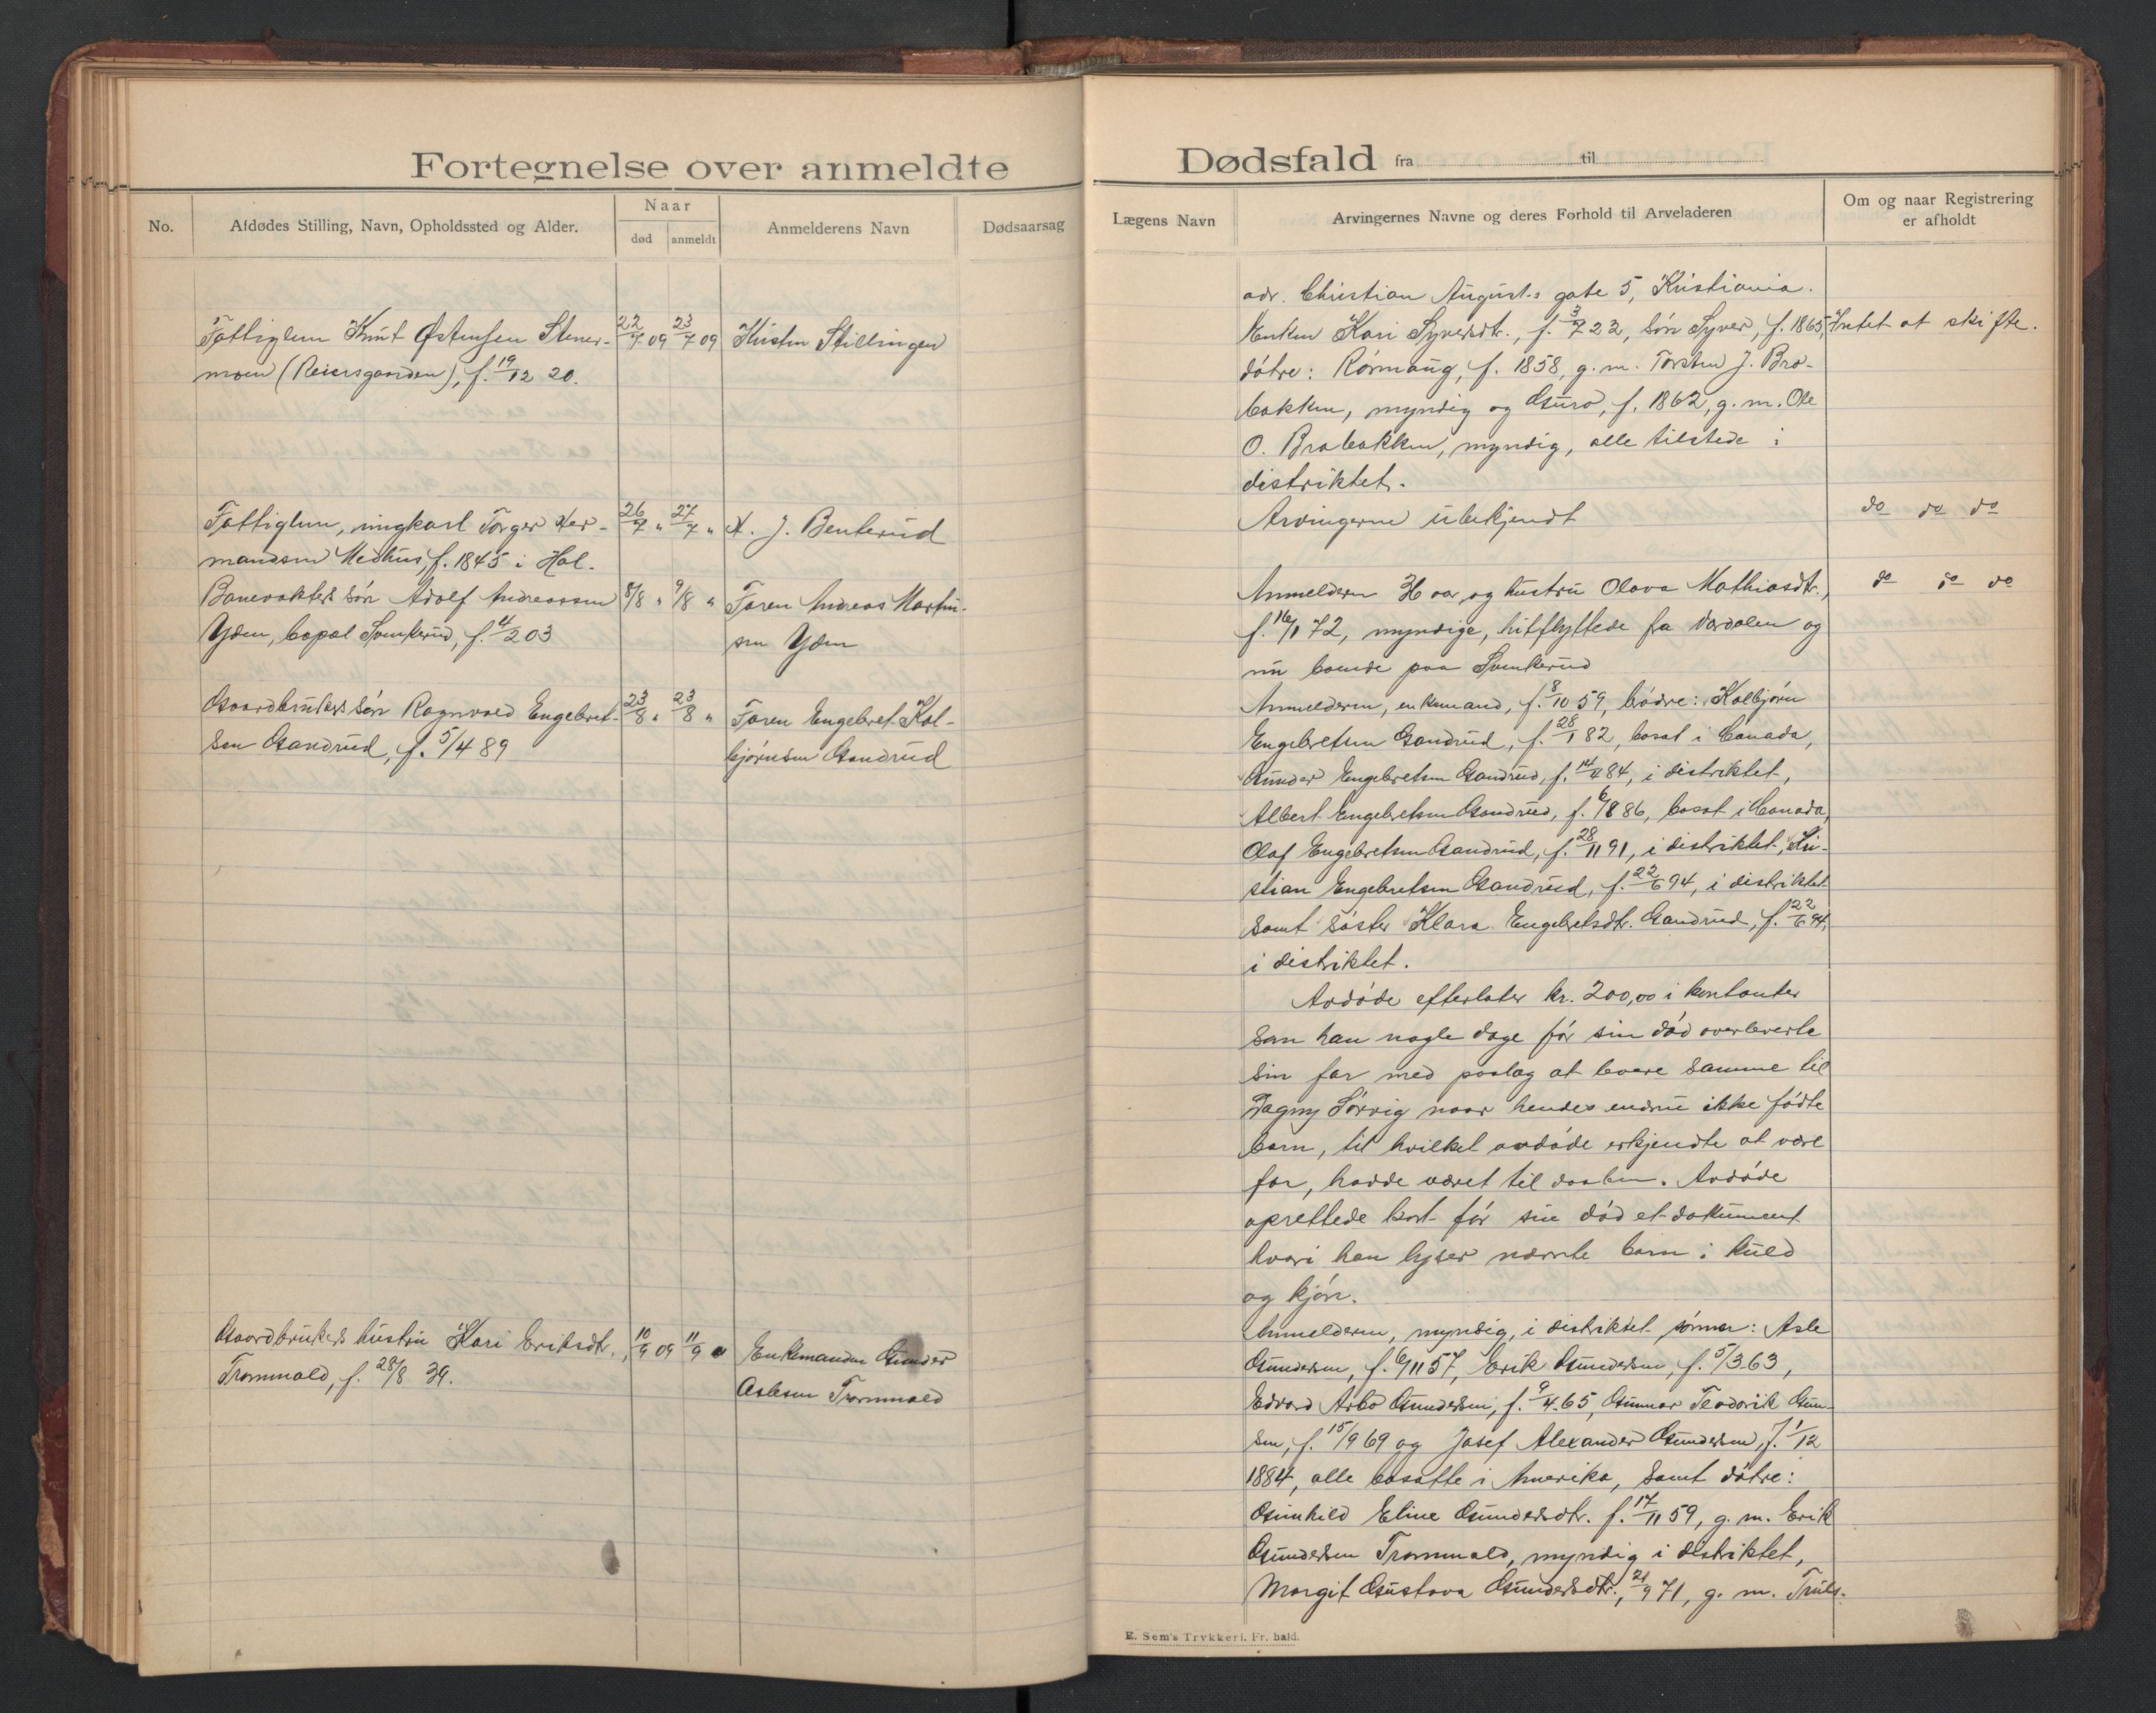 Fortegnelse over anmeldte
No.
Afdødes Stilling, Navn, Opholdssted og Alder.
Naar
død
anmeldt
Anmelderens Navn
Dødsaarsag
Fattiglem Knut Østensen Stener-
moen (Reiersgaarden), f. 19/12 20.
22/7 09
23/7 09
Kristen Stillingen
Fattiglem, ungkarl Torger Her-
mandsen Medhus, f. 1845 i Hol.
26/7 "
27/7 "
A. J. Benterud
Banevokters søn Adolf Andreassen
Yden, bopæl Svenkerud, f. 4/2 03
8/8 "
9/8 "
Faren Andreas Martin-
sen Yden
Gaardbrukers søn Ragnvald Engebret-
sen Gandrud, f. 5/4 89
23/8 "
23/8 "
Faren Engebret Kol-
bjørnsen Gandrud
Gaardbrukers hustru Kari Eriksdtr.,
Trommald, f. 28/8 39.
10/9 09
11/9 "
Enkemanden Gunder
Aslesen Trommald
Dødsfald fra til
Lægens Navn
Arvingernes Navne og deres Forhold til Arveladeren
Om og naar Registrering
er afholdt
adr. Christian August.s gate 5, Kristiania.
Enken Kari Syversdtr., f. 3/7 22, søn Syver, f. 1865,
døtre: Rønnaug, f. 1858, g. m. Torsten J. Bro-
bakken, myndig og Guro, f. 1862, g. m. Ole
O. Brobakken, myndig, alle tilstede i
distriktet.
Intet at skifte.
Arvingerne ubekjendt
do do do
Anmelderen 36 aar og hustru Olava Mathiasdtr.,
f. 16/1 72, myndige, hitflyttede fra Værdalen og
nu boende paa Svenkerud
do do do
Anmelderen, enkemand, f. 8/10 59, brødre: Kolbjørn
Engebretsen Gandrud, f. 28/1 82, bosat i Canada,
Gunder Engebretsen Gandrud, f. 14/4 84, i distriktet,
Albert Engebretsen Gandrud, f. 6/8 86, bosat i Canada,
Olaf Engebretsen Gandrud, f. 28/11 91, i distriktet, Kri-
stian Engebretsen Gandrud, f. 22/6 94, i distriktet
samt søster Klara Engebretsdtr. Gandrud, f. 22/6 94,
i distriktet.
Avdøde efterlater kr. 200,00 i kontanter
som han nogle dage før sin død overleverte
sin far med paalæg at levere samme til
Dagny Sørvig naar hendes endnu ikke fødte
barn, til hvilket avdøde erkjendte at være
far, hadde været til daaben. Avdøde
oprettede kort før sin død et dokument
hvori han lyser nævnte barn i kuld
og kjøn.
Anmelderen, myndig, i distriktet sønner: Asle
Gundersen, f. 6/11 57, Erik Gundersen, f. 5/3 63,
Edvard Arbo Gundersen, f. 9/4 65, Gunnar Teodorik Gun-
sen, f. 15/9 69 og Josef Alexander Gundersen, f. 1/12
1884, alle bosatte i Amerika, samt døtre:
Gunhild Eline Gundersdtr. f. 17/11 59, g. m. Erik
Gundersen Trommald, myndig i distriktet,
Margit Gustava Gundersdtr., 21/9 71, g. m. Truls
E. Sem's Trykkeri, Fr.hald.